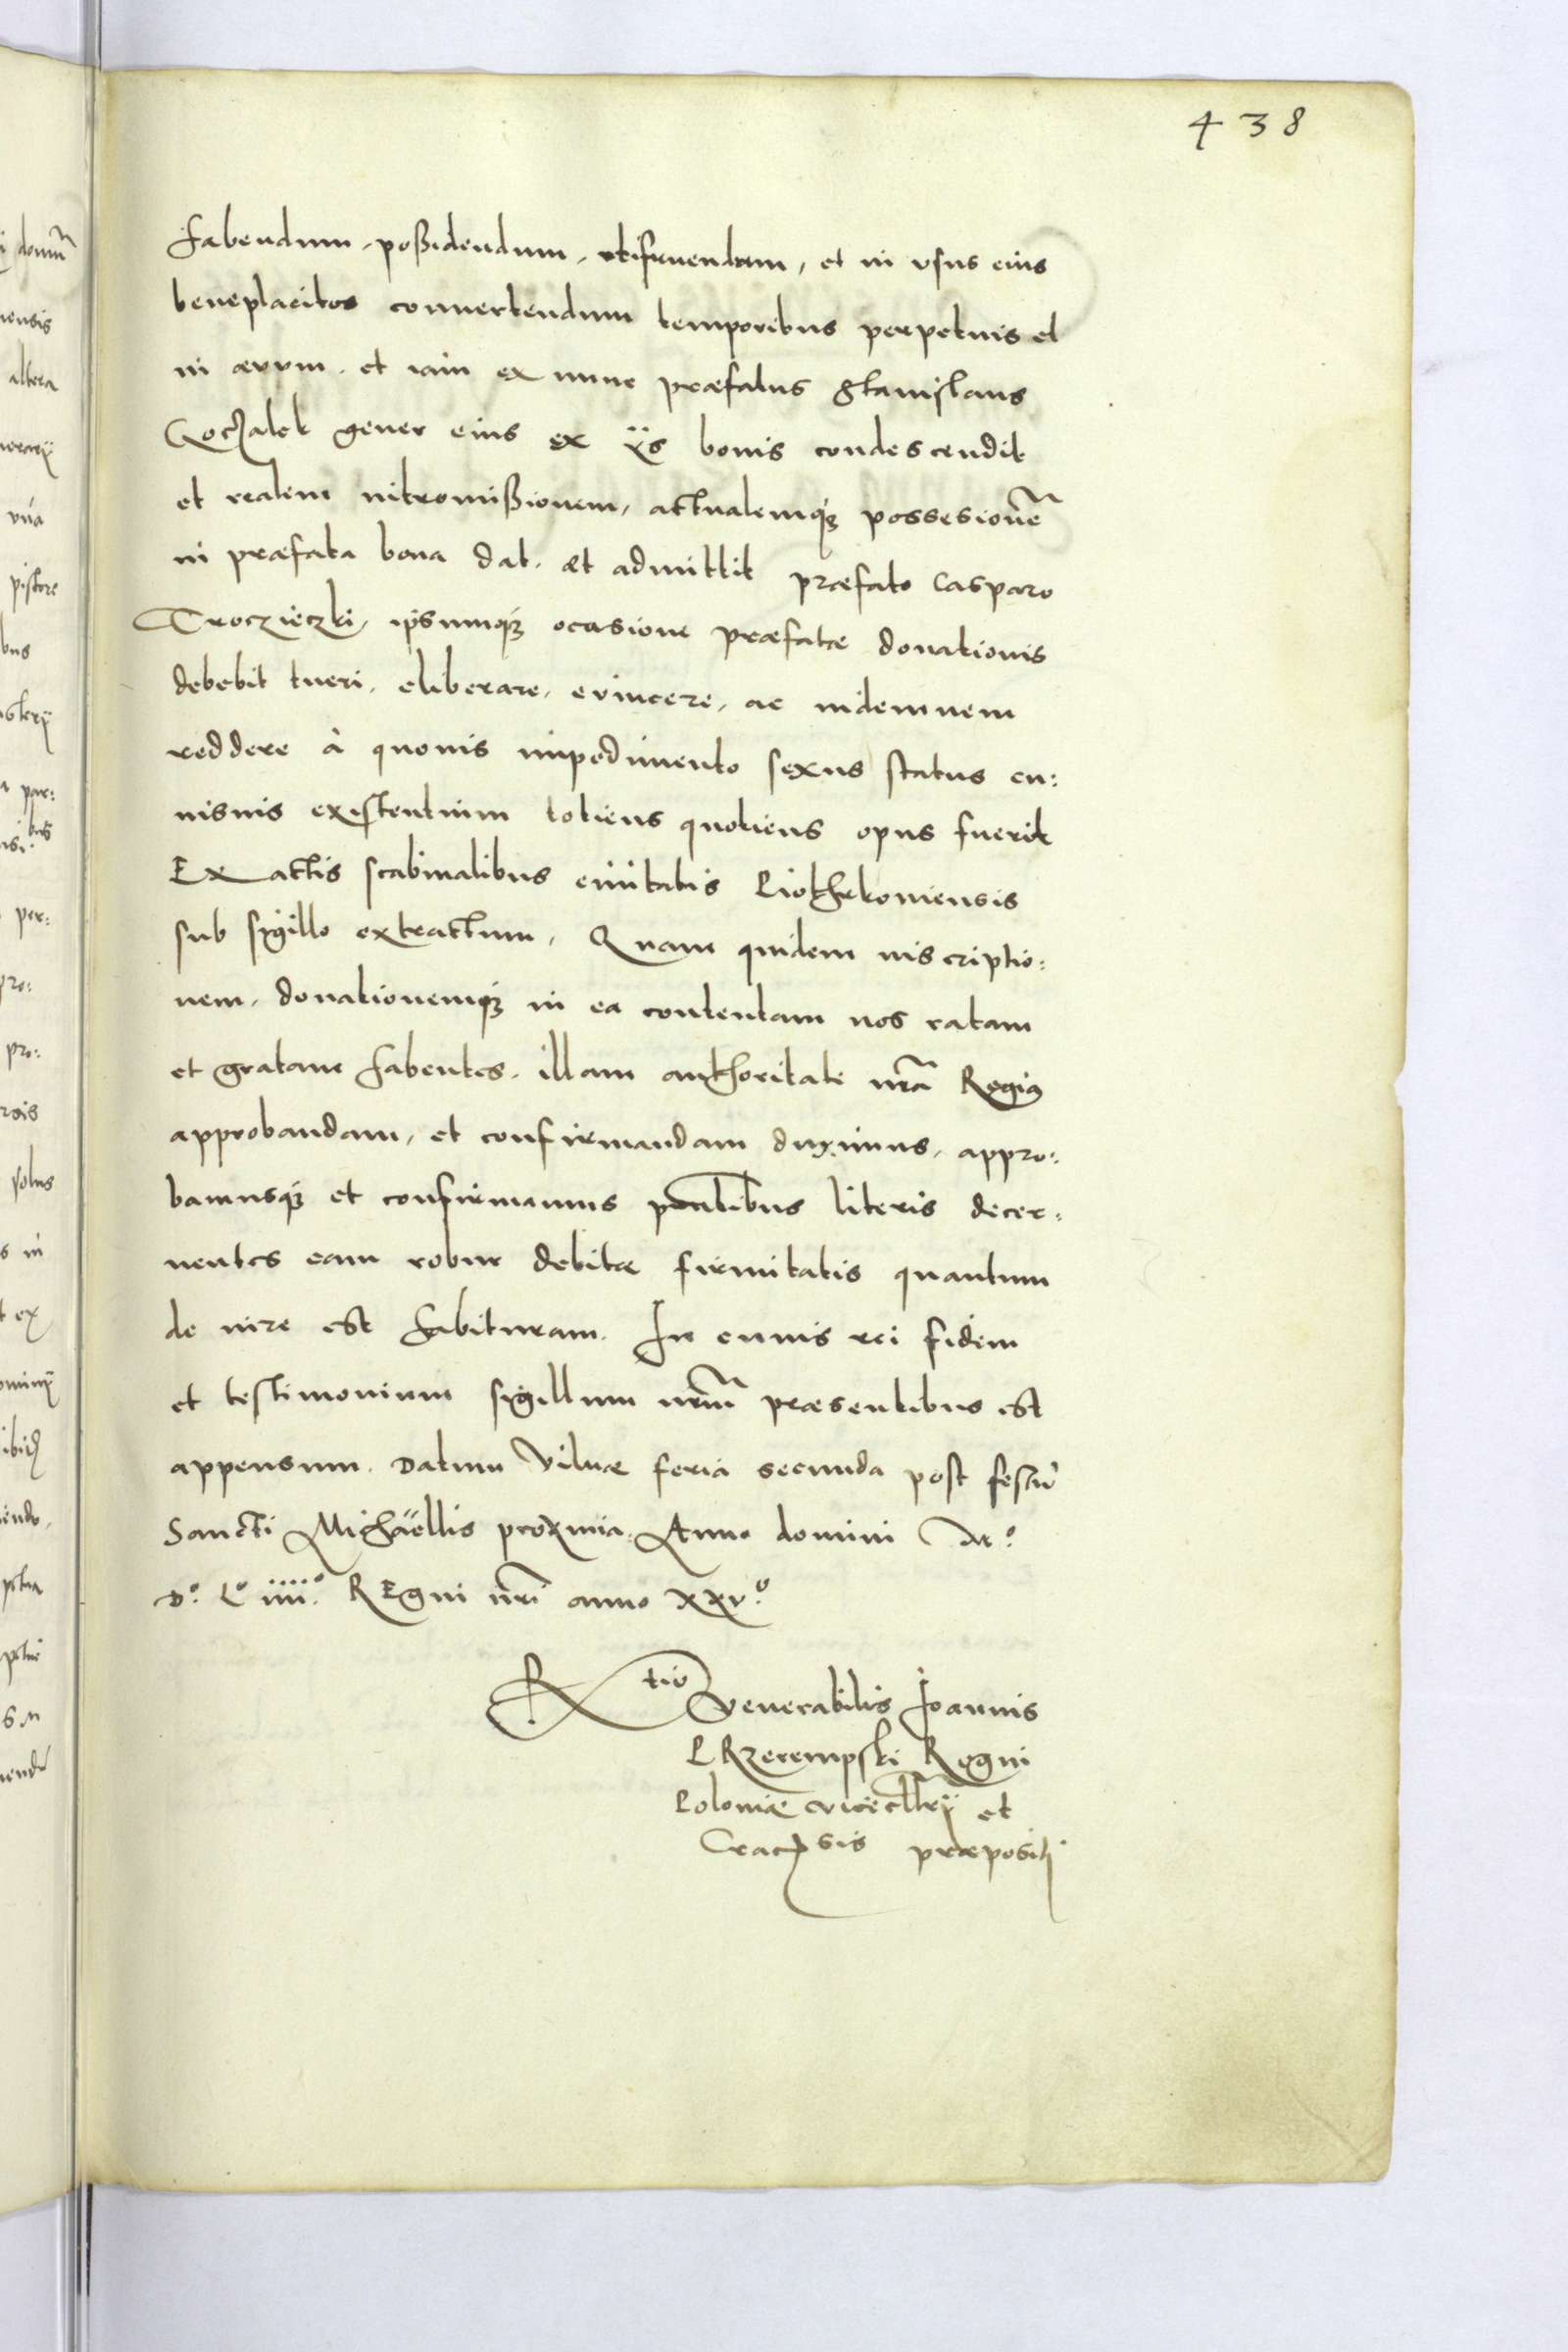 438
habendum, possidendum, utifruendum, et in usus eius
beneplacitos convertendum temporibus perpetuis et
in aevum. et iam ex nunc praefatus Stanislaus
Coczalek gener eius ex ÿs bonis condescendit
et realem intromissionem, actualemq3 possesionē
in praefata bona dat. et admittit praefato Casparo
Troczieczki, ipsumq3 ocasione praefatae donationis
debebit tueri, eliberare, evincere, ac indemnem
reddere à quovis impedimento sexus status cu:
iusvis existentium totiens quotiens opus fuerit
Ex actis scabinalibus civitatis Piothrkoviensis
sub sigillo extractum, Quam quidem inscriptio:
nem, donationemq3 in ea contentam nos ratam
et gratam habentes, illam authoritate nr̃a Regia
approbandam, et confirmandam duximus, appro:
bamusq3 et confirmamus pñtibus literis decer:
nentes eam robur debitae firmitatis quantum
de iure est habituram. In cuius rei fidem
et testimonium sigillum nr̃m praesentibus est
appensum. Datum Vilnae feria secunda post festū
Sancti Michaëllis proxima. Anno domini M°.
D°. L° iiii°. REgni nr̃i anno xxv°.
Rtio Venerabilis Joannis
PRzerempski Regni
Poloniae vicecllrÿ et
Cracsis praepositi